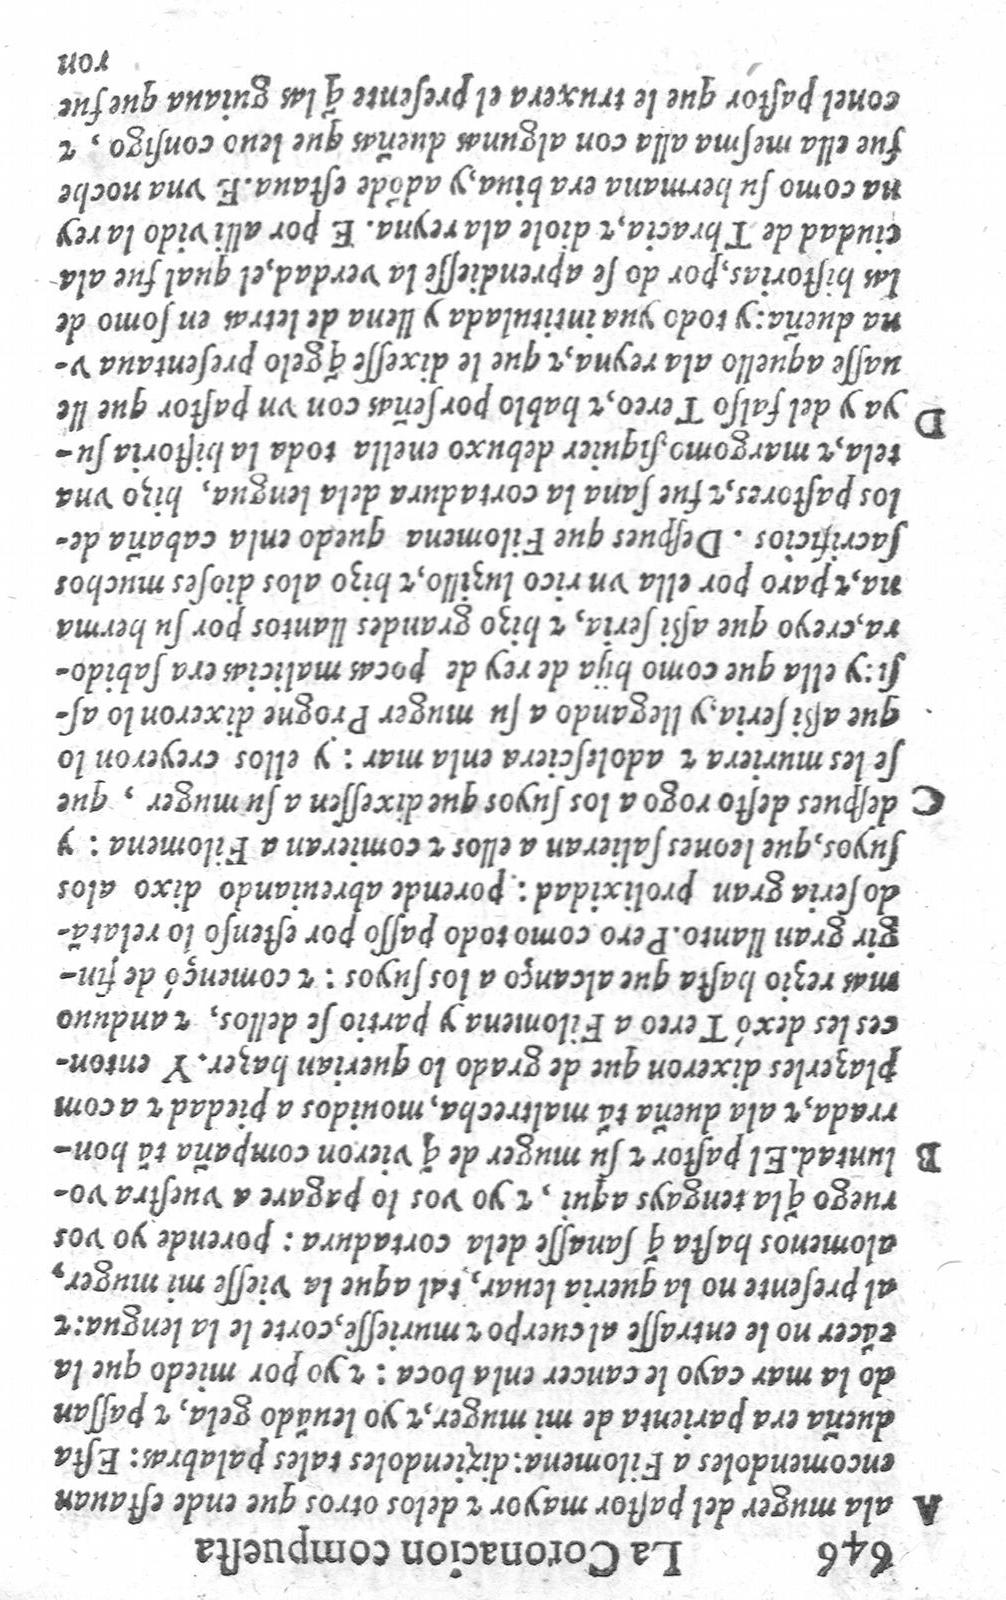 646 La Coronacion compuesta
A ala muger del pastor mayor τ delos otros que ende estauan
encomendoles a Filomena: diziendoles tales palabras: Esta
dueña era parienta de mi muger, τ yo leuãdo gela, τ passan
do la mar cayo le cancer enla boca : τ yo por miedo que la
cãcer no le entrasse al cuerpo τ muriesse, corte le la lengua: τ
al presente no la queria leuar, tal aque la viesse mi muger,
alomenos hasta q̃ sanasse dela cortadura : porende yo vos
ruego q̃la tengays aqui , τ yo vos lo pagare a vuestra vo-
B luntad. El pastor τ su muger de q̃ vieron compaña tã hon-
rrada, τ ala dueña tã maltrecha, mouidos a piedad τ a com
plazerles dixeron que de grado lo querian hazer. Y enton-
ces les dexó Tereo a Filomena y partio se dellos, τ anduuo
mas rezio hasta que alcanço a los suyos : τ començó de fin-
gir gran llanto. Pero como todo passo por estenso lo relatã-
do seria gran prolixidad : porende abreuiando dixo alos
suyos, que leones salieran a ellos τ comieran a Filomena : y
C despues desto rogo a los suyos que dixessen a su muger , que
se les muriera τ adolesciera enla mar : y ellos creyeron lo
que assi seria, y llegando a su muger Progne dixeron lo as-
si: y ella que como hija de rey de pocas malicias era sabido-
ra, creyo que assi seria, τ hizo grandes llantos por su herma
na, τ paro por ella vn rico luzillo, τ hizo alos dioses muchos
sacrificios . Despues que Filomena quedo enla cabaña de-
los pastores, τ fue sana la cortadura dela lengua, hizo vna
tela, τ margomo, siquier debuxo enella toda la historia su-
D ya y del falso Tereo, τ hablo por señas con vn pastor que lle
uasse aquello ala reyna, τ que le dixesse q̃gelo presentaua v-
na dueña: y todo yua intitulada y llena de letras en somo de
las historias, por do se aprendiesse la verdad, el qual fue ala
ciudad de Thracia, τ diole ala reyna. E por alli vido la rey
na como su hermana era biua, y adõde estaua. E vna noche
fue ella mesma alla con algunas dueñas que leuo consigo , τ
conel pastor que le truxera el presente q̃ las guiaua que fue
ron